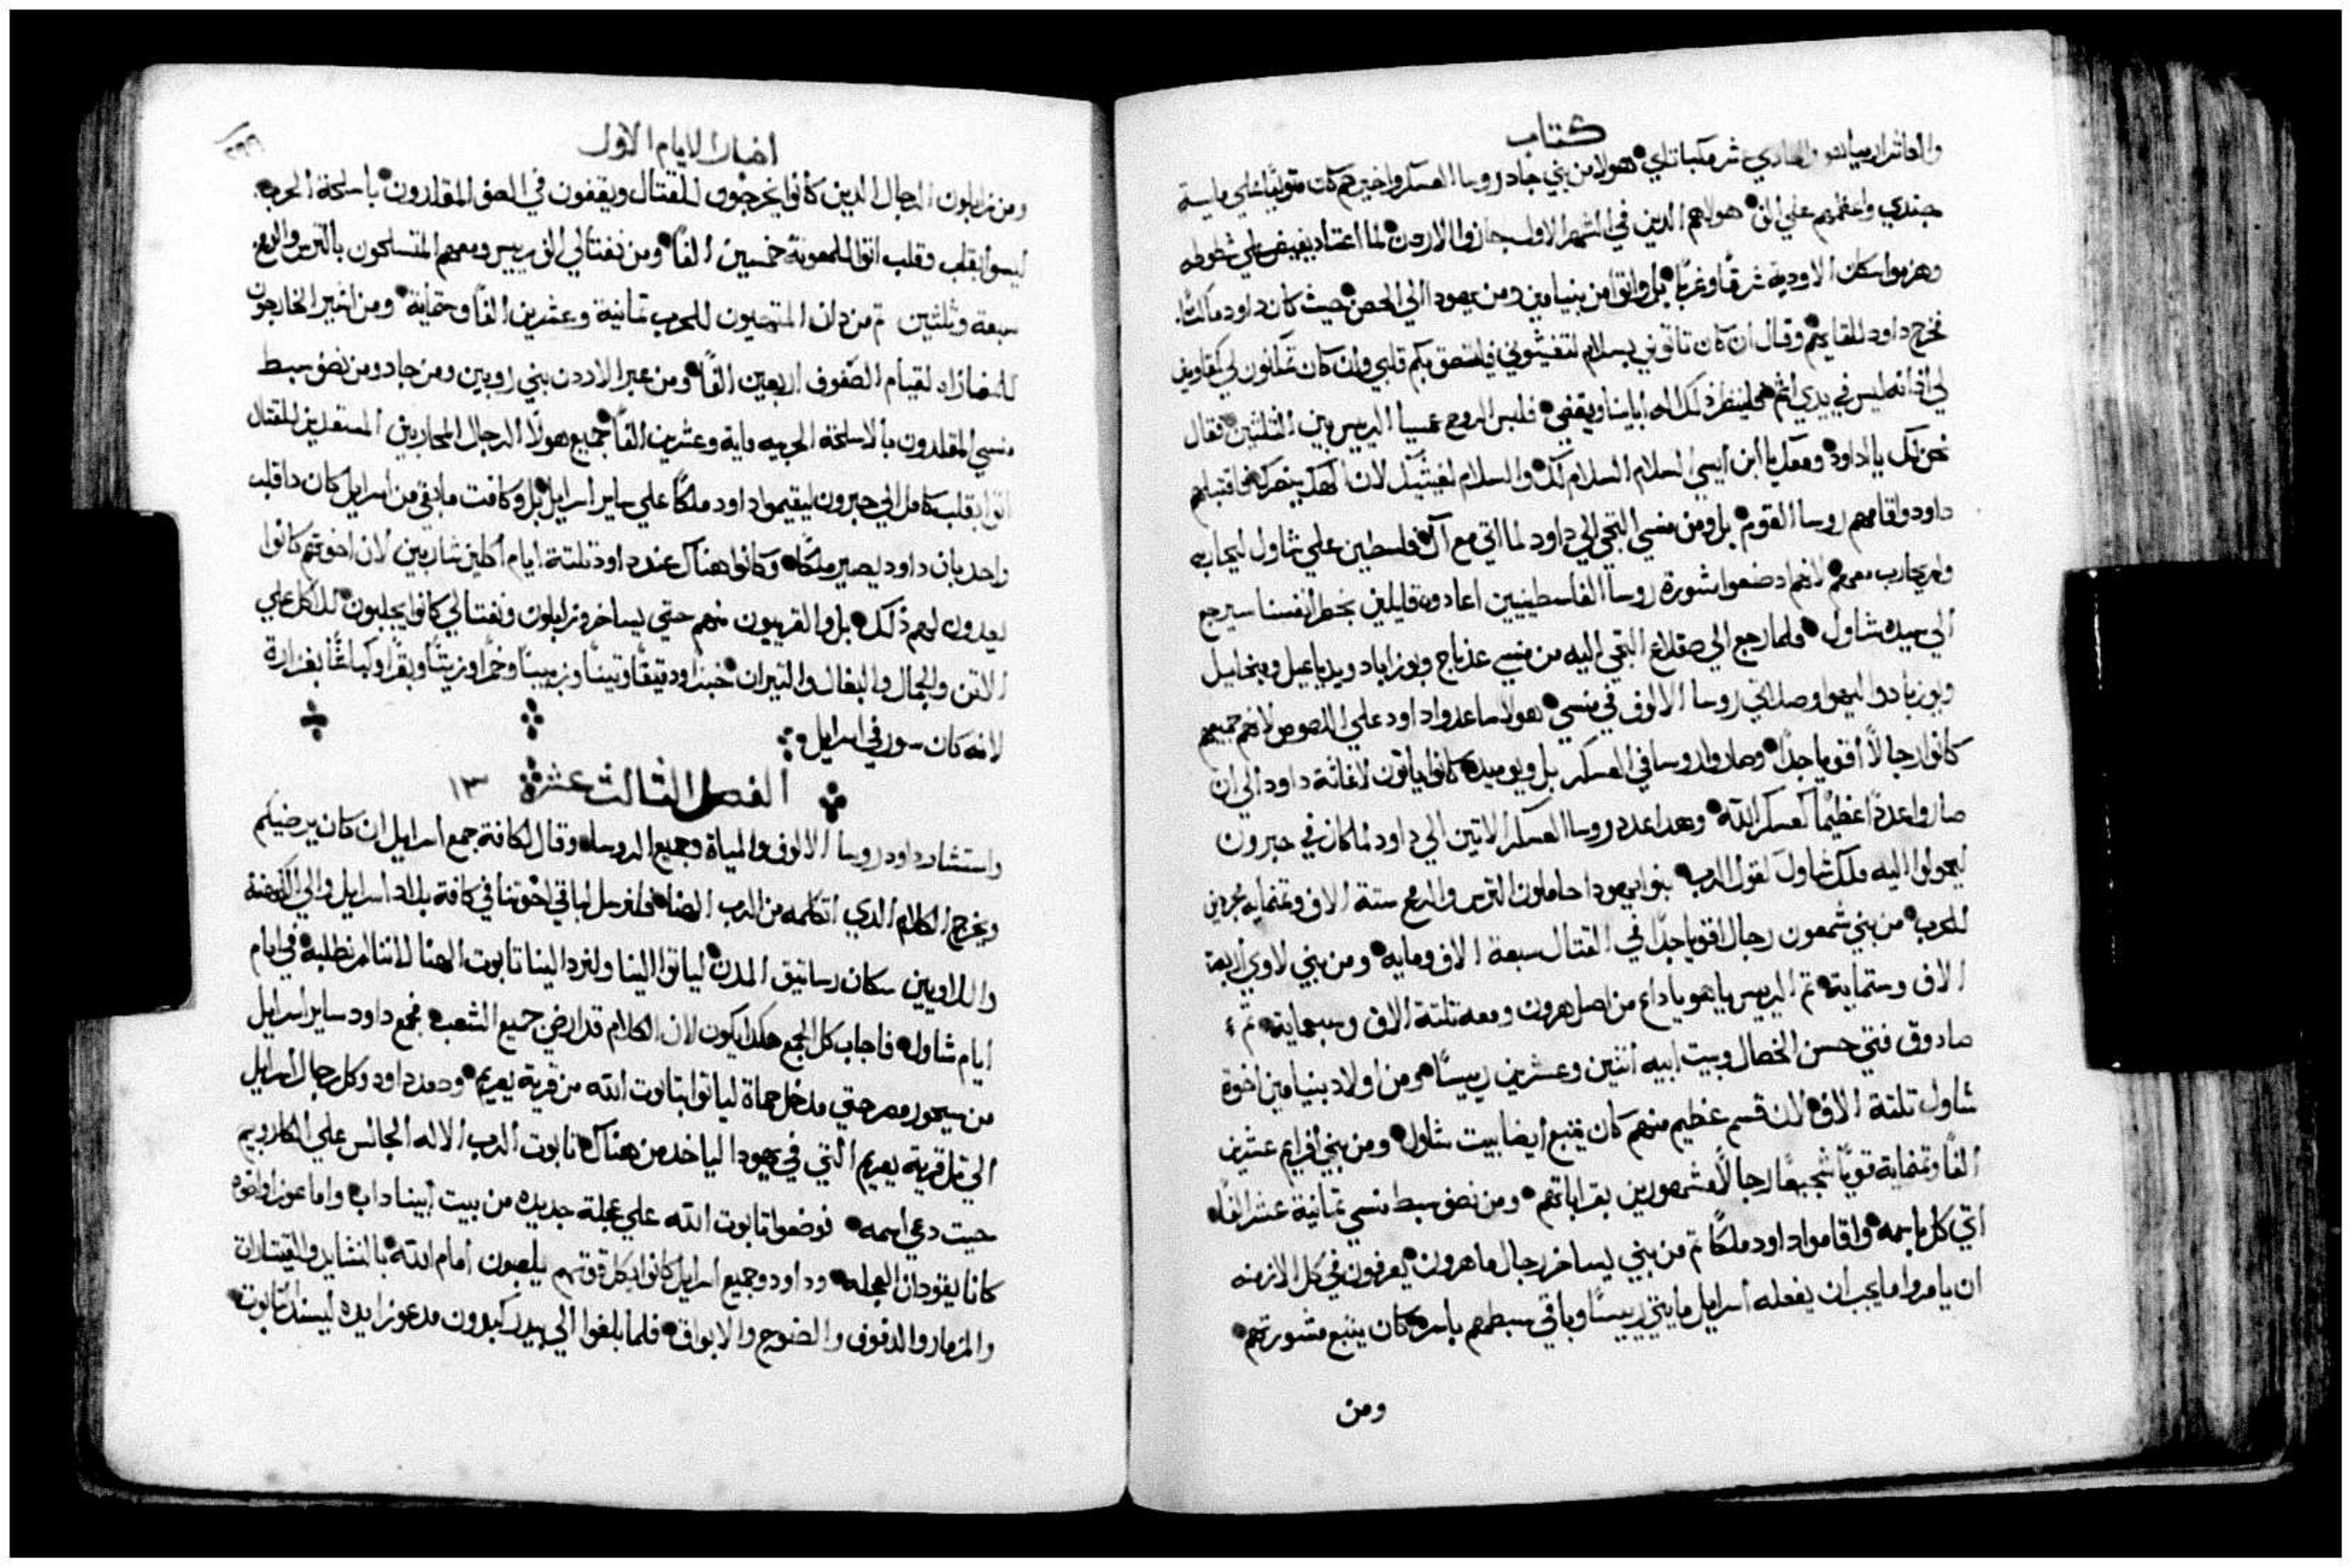 كتاب
والعاشر ارميا والحادي عشر مكباناي هولا من بني جاد روسا العسكر واخيرهم كان متوليًا علي ماية
جندي واعظمهم علي الف هولاهم الدين في الشهر الاول جازوا الاردن لما اعتاد يفيض علي شطوطه
وهزموا سكان الاودية شرقًا وغربًا بل واتوا من بنيامين ومن يهودا الي الحصن حيث كان داود ماكثًا
نخرج داود للقايهم وقال ان كان تاتوني بسلام لتغيثوني فليلتصق بكم قلبي وان كان تمكنون لي كمقاومين
لي اذ انه ليس في يدي اثم فلينظر ذلك اله ابايينا ويقضي فلبس الروح عمسيا الرييس بين الثلثين فقال
نحن لك يا داود ومعك يا ابن ايسي السلام السلام لك والسلام لمغيثيك لان الهك ينصرك فاقتبلهم
داود واقامهم روسا القوم بل ومن منسي التجي الي داود لما اتي مع آل فلسطين علي شاول ليحاربه
ولم يحارب معهم لانهم ادصنعوا مشورة روسا الفلسطينيين اعادوه قايلين بخطر انفسنا سيرجع
الي سيده شاول فلما رجع الي صقلاغ التجي اليه من منسي عدناح ويوزاباد ويدياعيل وميخاييل
ويوزباد واليهو وصلاتي روسا الالوف في منسي هولا ساعدوا داود علي اللصوص لانهم جميعهم
كانوا رجالًا أقويا جدًا وصاروا روسا في العسكر بل ويوميد كانوا ياتون لاغاثة داود الي ان
صاروا عددًا عظيمًا كعسكر الله وهدا عدد روسا العسكر الاتين الي داود لما كان في حبرون
ليحولوا اليه ملك شاول كقول الرب بنوا يهودا حاملون الترس والرمح ستة الاف وتمنماية مجردين
للحرب من بني شمعون رجال اقويا جدًا في القتال سبعة الاف وماية ومن بني لاوي اربعة
الاف وستماية تم الرييس ياهوياداع من اصل هرون ومعه تلتة الاف وسبعماية تم
صادوق فتي حسن الخصال وبيت ابيه اتنين وعشرين رييسًا ومن اولاد بنيامين اخوة
شاول تلتة الاف لان قسم عظيم منهم كان يتبع ايضا بيت شاول ومن بني افرايم عشرين
الفًا وتمنماية قويًا شجيعًا رجالًا مشهورين بقراباتهم ومن نصف سبط منسي تمانية عشر الفًا
اتي كل باسمه واقاموا داود ملكًا تم من بني يساخر رجال ماهرون يعرفون في كل الازمنه
ان يامروا ما يجب ان يفعله اسراييل مايتي رييسًا وباقي سبطهم باسره كان يتبع مشورتهم
ومن
اخبار الايام الاول
ومن زابلون الرجال الدين كانوا يخرجون للقتال ويقفون في الصف المقلدون باسلحة الحرب
ليسوا بقلب وقلب اتوا للمعونة خمسين الفًا ومن نفتالي الف رييس ومعهم المتسلحون بالترس والرمح
سبعة وتلتين تم من دان المتهييون للحرب تمانية وعشرين الفًا وستماية ومن اشير الخارجون
للمضاراه لقيام الصفوف اربعين الفًا ومن عبر الاردن بني روبين ومن جاد ومن نصف سبط
منسي المقلدون بالاسلحة الحربيه ماية وعشرين الفًا جميع هولا الرجال المحاربين المستعدين للقتال
اتوا بقلب كامل الي حبرون ليقيموا داود ملكًا علي ساير اسراييل بل وكافت مابقي من اسراييل كان داقلب
واحد بان داود يصير ملكًا وكانوا هناك عند داود تلتة ايام اكلين شاربين لان اخوتهم كانوا
يعدون لهم ذلك بل والقريبون منهم حتي يساخر وزابلون ونفتالي كانوا يجلبون للاكل علي
الاتن والجمال والبغال والتيران خبزًا ودقيقًا وتينًا وزبيبًا وخمرًا وزيتًا وبقرًا وكباشًا بغزارة
لانه كان سرور في اسراييل
الفصل التالت عشر ١٣
واستشار داود روسا الالوف والمياة وجميع الروسا وقال لكافة جمع اسراييل ان كان يرضيكم
ويخرج الكلام الدي اتكلمه من الرب الهنا فلنرسل لباقي اخوتنا في كافة بلاد اسراييل والي الكهنة
واللاويين سكان رساتيق المدن لياتوا الينا ولنرد الينا تابوت الهنا لاننا لم نطلبه في ايام
ايام شاول فاجاب كل الجمع هكدا يكون لان الكلام قد ارضي جميع الشعب فجمع داود ساير اسراييل
من سيحور مصر حتي مدخل حماة لياتوا بتابوت الله من قرية يعريم وصعد داود وكل رجال اسراييل
الي تل قرية يعريم التي في يهودا لياخد من هناك تابوت الرب الاله الجالس علي الكاروبيم
حيت دعي اسمه فوضعوا تابوت الله علي عجلة جديده من بيت ابيناداب واما عوزا واخوه
كانا يقودان العجله وداود وجميع اسراييل كانوا بكل قوتهم يلعبون امام الله بالنشايد والقيتارات
والمزمار والدفوف والصنوج والابواق فلما بلغوا الي بيدر كيدون مد عوزا يده ليسند التابوت